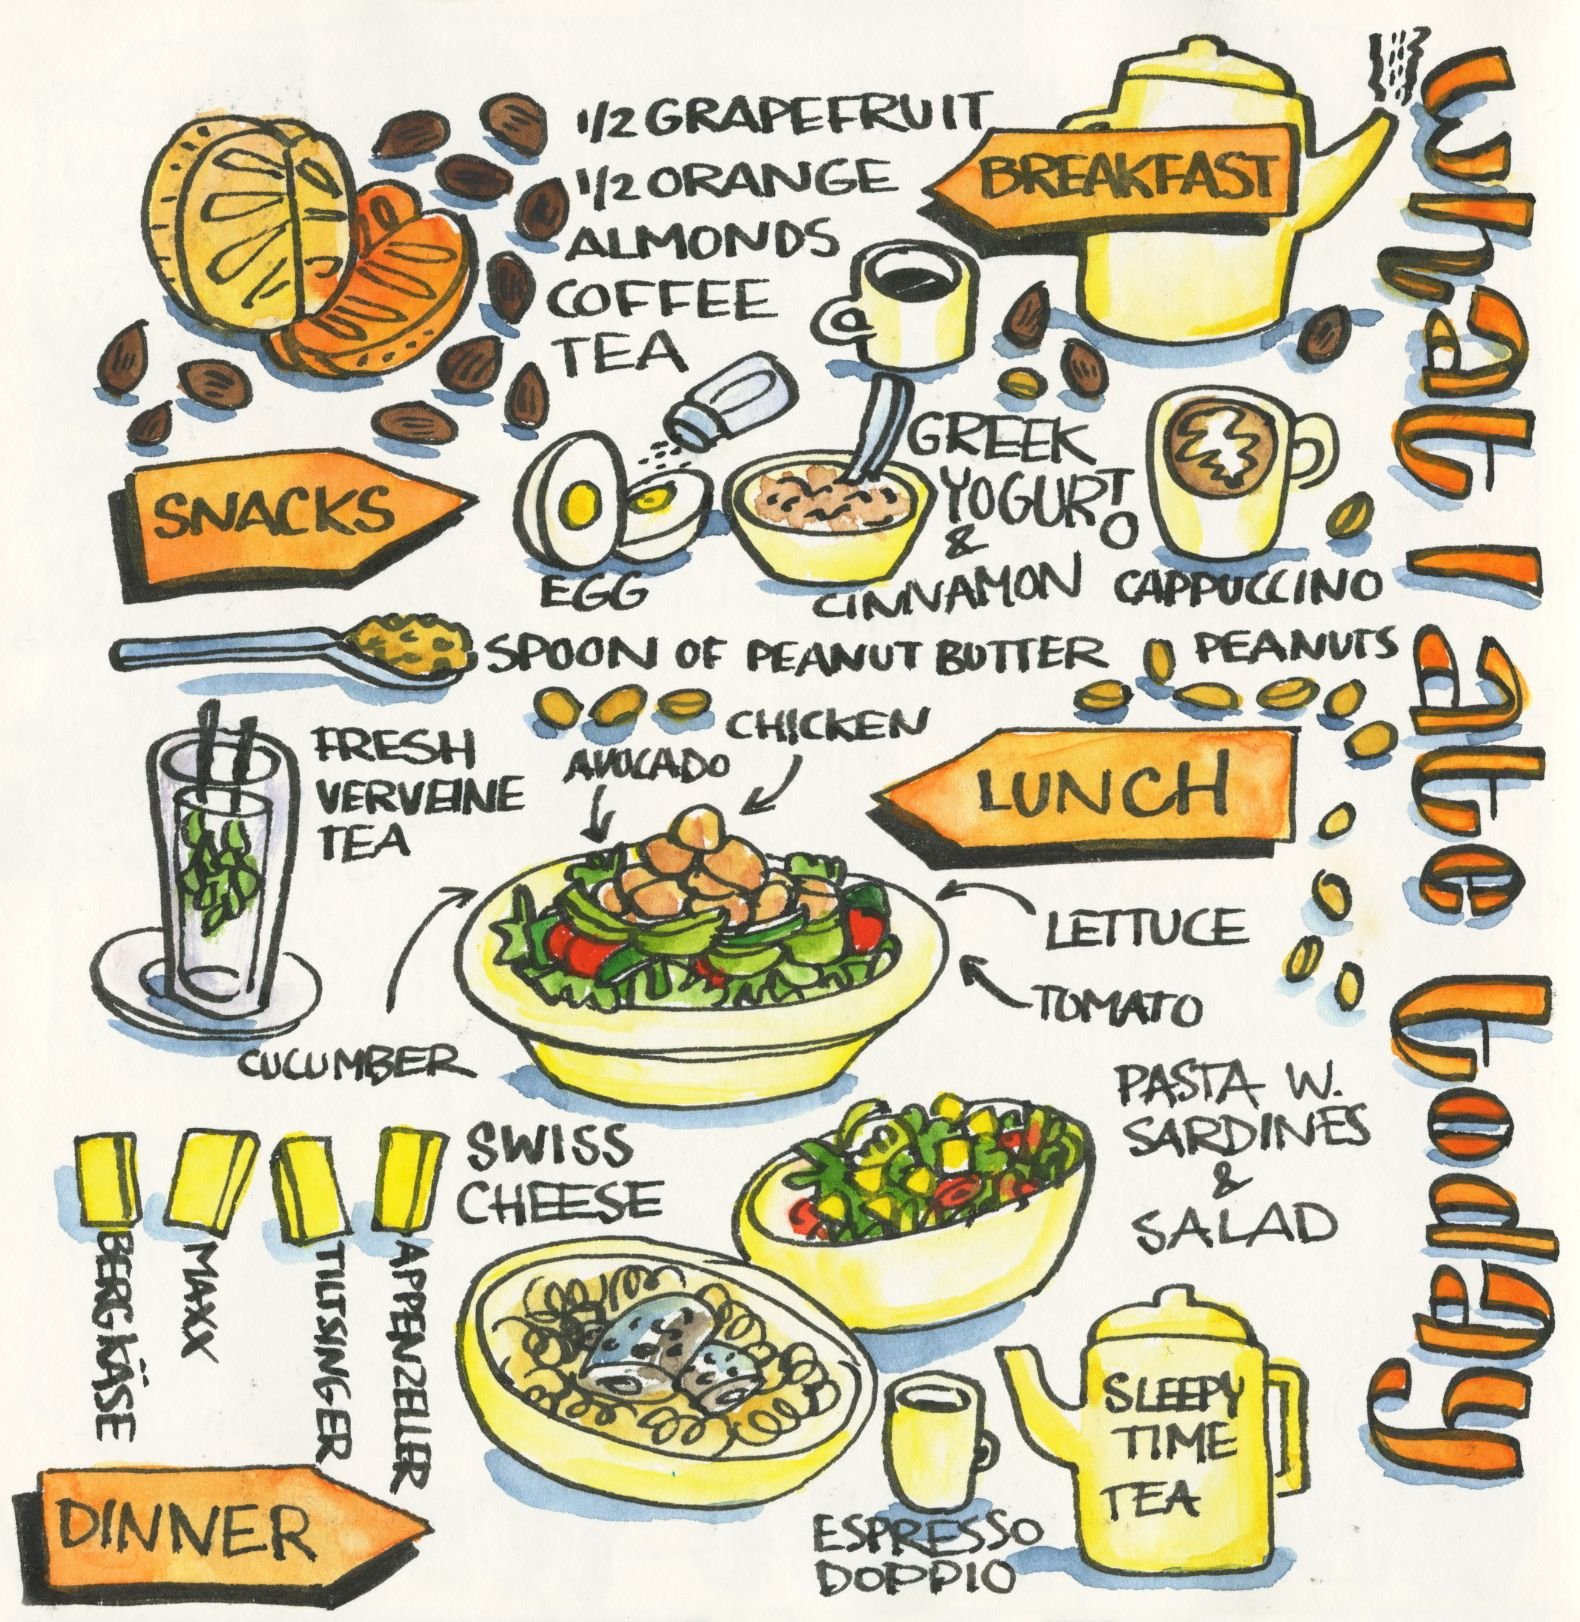 What I ate today
BREAKFAST
1/2 GRAPEFRUIT
1/2 ORANGE
ALMONDS
COFFEE
TEA
SNACKS
EGG
GREEK
YOGURT
&
CINNAMON
TO
CAPPUCCINO
SPOON OF PEANUT BUTTER
PEANUTS
FRESH
VERVEINE
TEA
LUNCH
CHICKEN
AVOCADO
LETTUCE
TOMATO
CUCUMBER
SWISS
CHEESE
BERGKÄSE
MAXX
TILTSINGER
APPENZELLER
PASTA W.
SARDINES
&
SALAD
DINNER
ESPRESSO
DOPPIO
SLEEPY
TIME
TEA